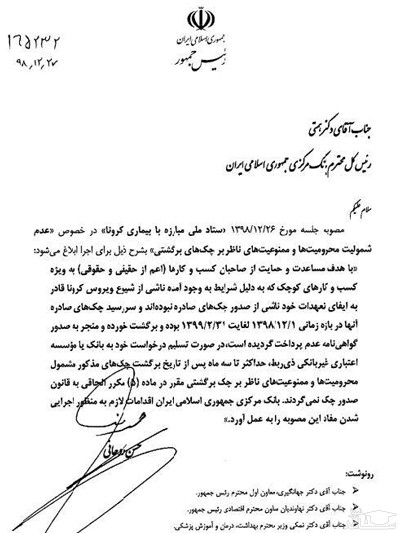 ۱۶۵۲۳۲
۹۸،۱۲،۲۷
جمهوری اسلامی ایران
رئیس جمهور
جناب آقای دکتر همتی
رئیس کل محترم بانک مرکزی جمهوری اسلامی ایران
سلام علیکم
مصوبه جلسه مورخ ۱۳۹۸/۱۲/۲۶ «ستاد ملی مبارزه با بیماری کرونا» در خصوص «عدم
شمولیت محرومیت‌ها و ممنوعیت‌های ناظر بر چک‌های برگشتی» بشرح ذیل برای اجرا ابلاغ می‌شود:
«با هدف مساعدت و حمایت از صاحبان کسب و کارها (اعم از حقیقی و حقوقی) به ویژه
کسب و کارهای کوچک که به دلیل شرایط به وجود آمده ناشی از شیوع ویروس کرونا قادر
به ایفای تعهدات خود ناشی از صدور چک‌های صادره نبوده‌اند و سررسید چک‌های صادره
آنها در بازه زمانی ۱۳۹۸/۱۲/۱ لغایت ۱۳۹۹/۲/۳۱ بوده و برگشت خورده و منجر به صدور
گواهی‌نامه عدم پرداخت گردیده است، در صورت تسلیم درخواست خود به بانک یا مؤسسه
اعتباری غیربانکی ذی‌ربط، حداکثر تا سه ماه پس از تاریخ برگشت چک‌های مذکور مشمول
محرومیت‌ها و ممنوعیت‌های ناظر بر چک برگشتی مقرر در ماده (۵) مکرر الحاقی به قانون
صدور چک نمی‌گردند. بانک مرکزی جمهوری اسلامی ایران اقدامات لازم به منظور اجرایی
شدن مفاد این مصوبه را به عمل آورد.»
حسن روحانی
رونوشت:
جناب آقای دکتر جهانگیری، معاون اول محترم رئیس جمهور.
جناب آقای دکتر نهاوندیان معاون محترم اقتصادی رئیس جمهور.
جناب آقای دکتر نمکی وزیر محترم بهداشت، درمان و آموزش پزشکی.